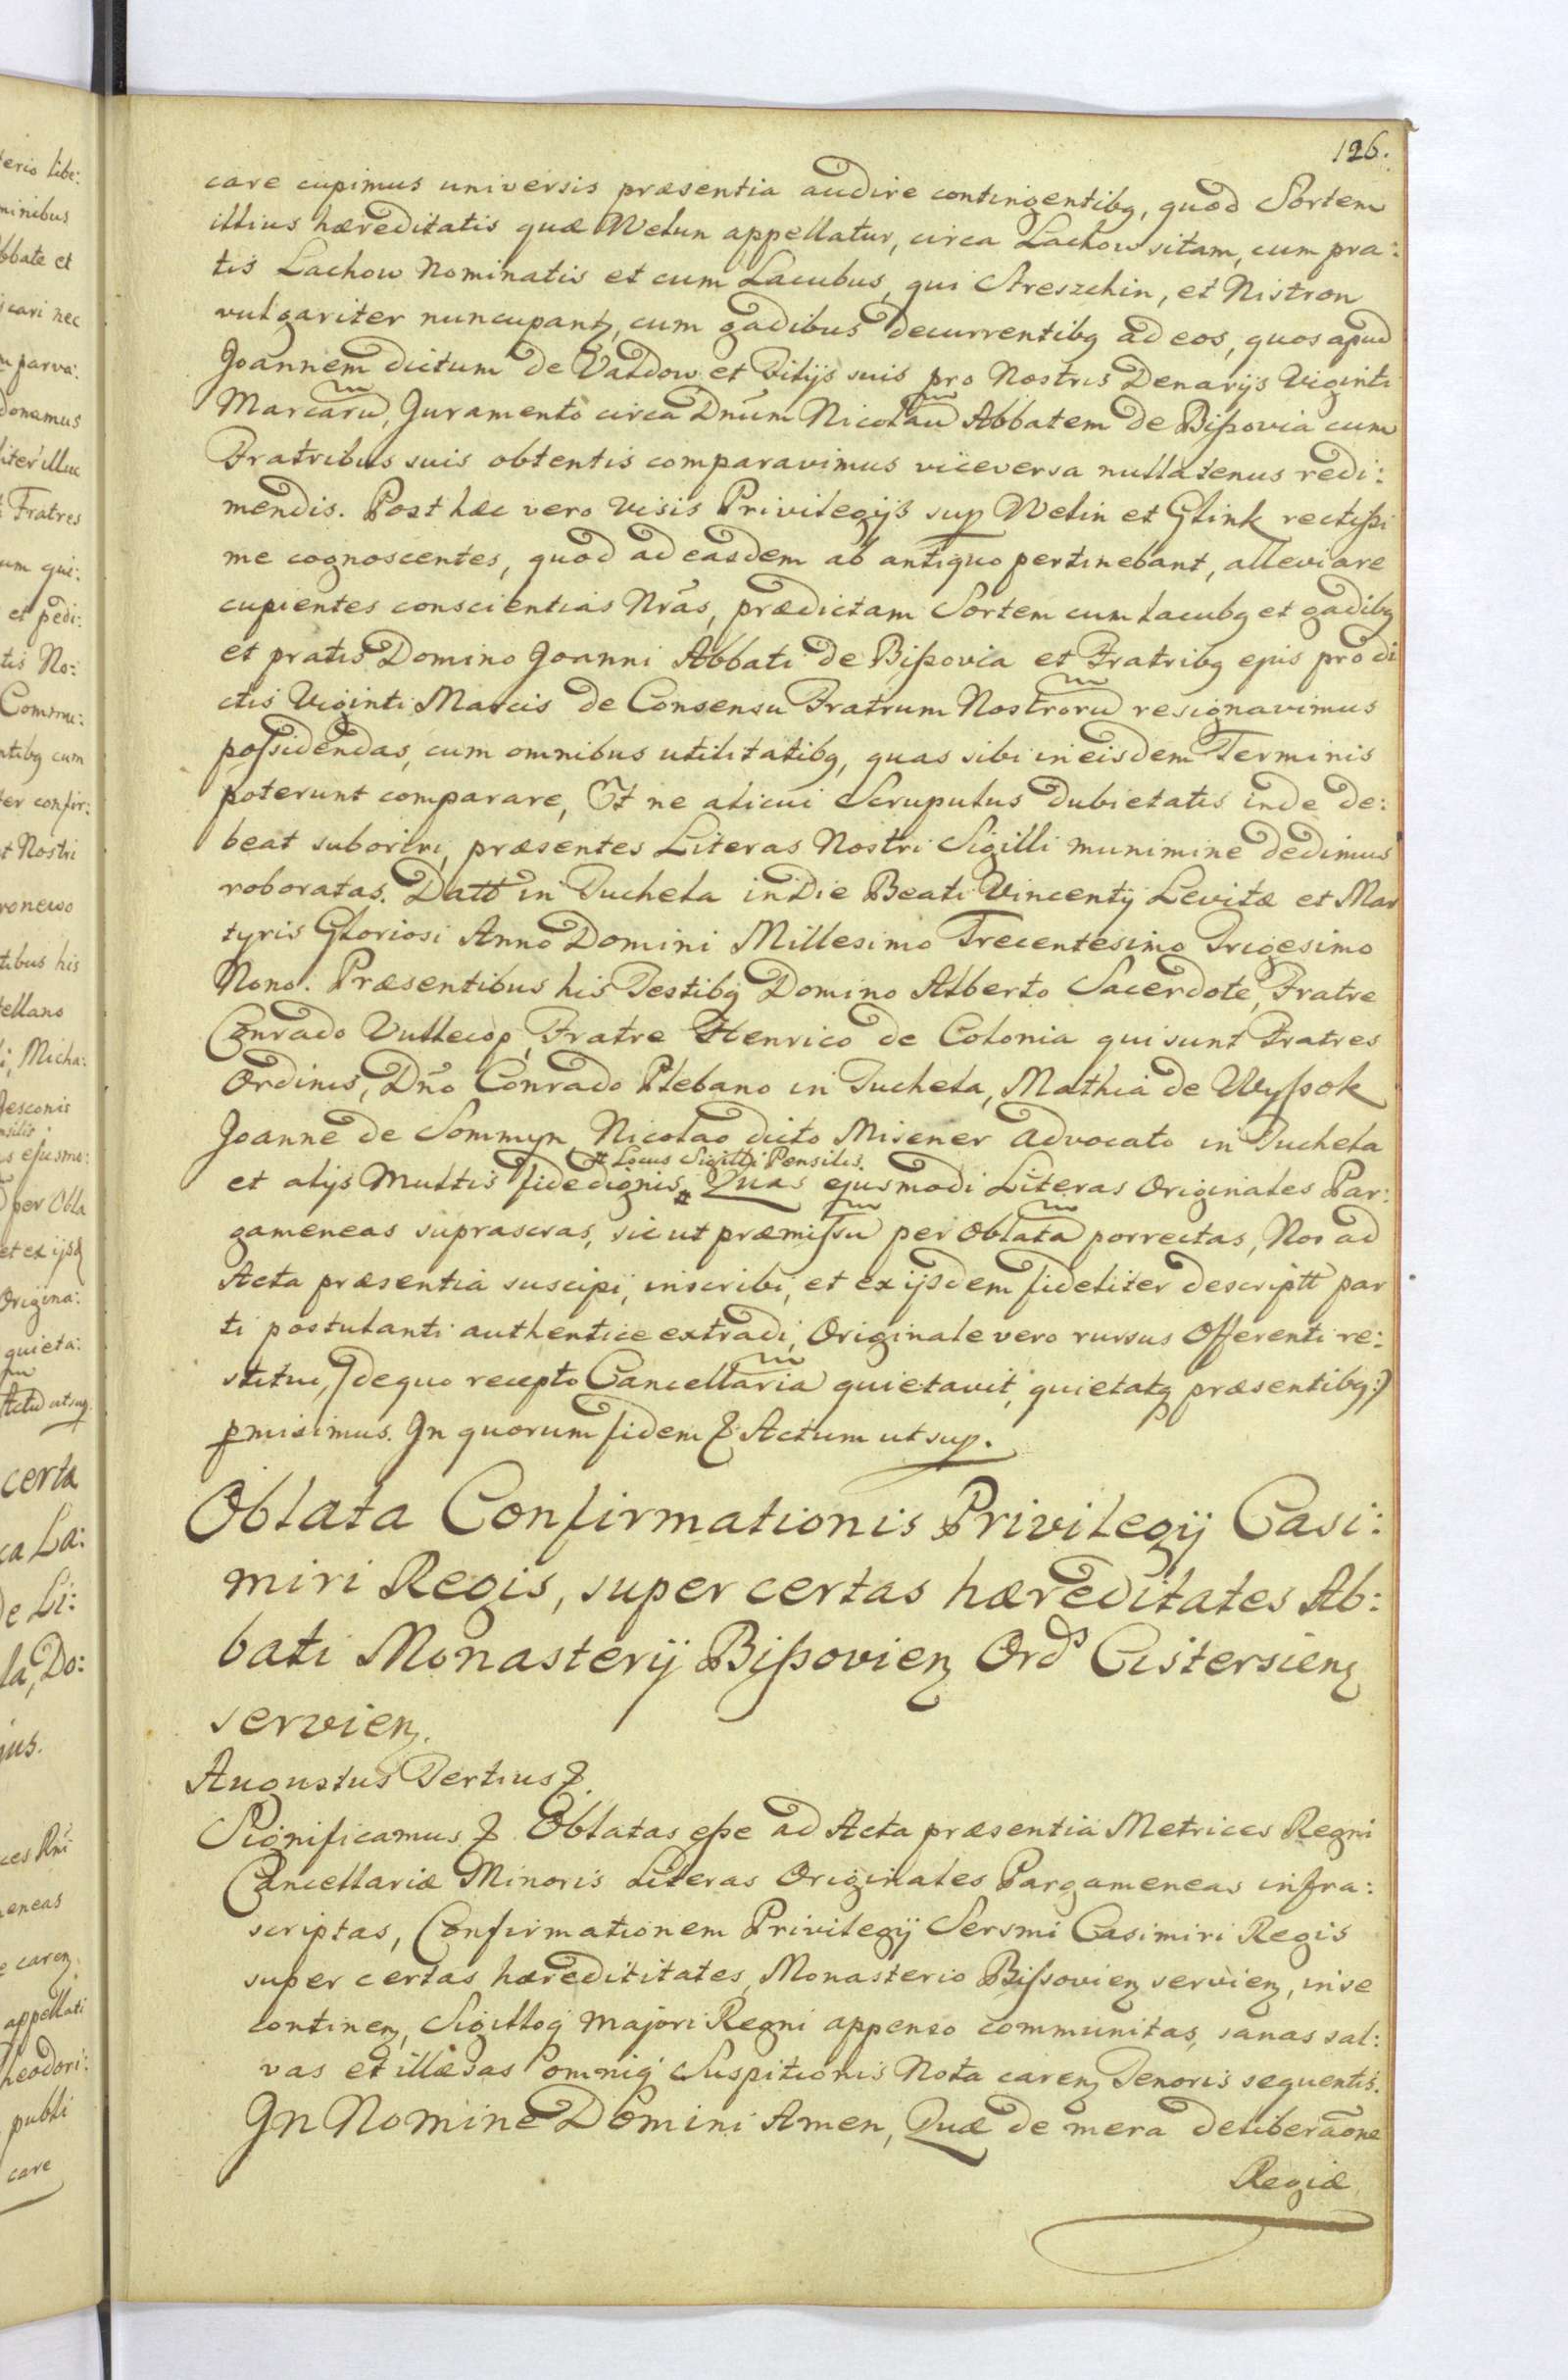 126.
care cupimus universis præsentia audire contingentibꝫ, quod Sortem
illius hæreditatis quæ Welun appellatur, circa Lachow sitam, cum pra:
tis Lachow Nominatis et cum Lacubus, qui Streszchin, et Nistron
vulgariter nuncupantꝫ, cum gadibus decurrentibꝫ ad eos, quos apud
Joannem dictum de Valdow et Filijs suis pro Nostris Denarijs Viginti
Marcarũ, Juramento circa Dnum Nicolaũ Abbatem de Bißovia cum
Fratribus suis obtentis comparavimus viceversa nullatenus redi:
mendis. Post hæc vero visis Privilegijs sup Welin et Glink rectißi
me cognoscentes, quod ad easdem ab antiquo pertinebant, alleviare
cupientes conscientias Nrãs, prædictam Sortem cum lacubꝫ et gadibꝫ
et pratis Domino Joanni Abbati de Bißovia et Fratribꝫ ejus pro di
ctis Viginti Marcis de Consensu Fratrum Nostrorũ resignavimus
poßidendas, cum omnibus utilitatibꝫ, quas sibi in eisdem Terminis
poterunt comparare, Et ne alicui Scrupulus dubietatis inde de:
beat suboriri, præsentes Literas Nostri Sigilli munimine dedimus
roboratas. Datt in Tuchela in Die Beati Vincentij Levitæ et Mar
tyris Gloriosi Anno Domini Millesimo Trecentesimo Trigesimo
Nono. Præsentibus his Testibꝫ Domino Alberto Sacerdote, Fratre
Conrado Vullecop, Fratre Henrico de Colonia qui sunt Fratres
Ordinis, Dno Conrado Plebano in Tuchela, Mathia de Wyßok
Joanne de Sommyn, Nicolao dicto Misener Advocato in Tuchela
# Locus Sigilli Pensilis.
et alijs Multis fidedignis # Quas ejusmodi Literas Originales Par:
gameneas suprascras, sicut præmißũ per Oblatã porrectas, Nos ad
Acta præsentia suscipi, inscribi, et ex ijsdem fideliter descriptt par
ti postulanti authentice extradi, Originale vero rursus Offerenti re:
stitui, /: de quo recepto Cancellariã quietavit, quietatꝗ præsentibꝫ :/
pmisimus. In quorum fidem & Actum ut sup.
Oblata Confirmationis Privilegij Casi:
miri Regis, super certas hæreditates Ab:
bati Monasterij Bißovienꝫ Ords Cistersienꝫ
servienꝫ.
Augustus Tertius &.
Significamus & Oblatas eße ad Acta præsentia Metrices Regni
Cancellariæ Minoris Literas Originales Pargameneas infra:
scriptas, Confirmationem Privilegij Sersmi Casimiri Regis
super certas hæreditittates, Monasterio Bißovienꝫ servienꝫ, in se
continenꝫ, Sigilloꝗ Majori Regni appenso communitas, sanas sal:
vas et illæsas omniꝗ Suspitionis Nota carenꝫ Tenoris sequentis.
In Nomine Domini Amen, Quæ de mera deliberaone
Regiæ